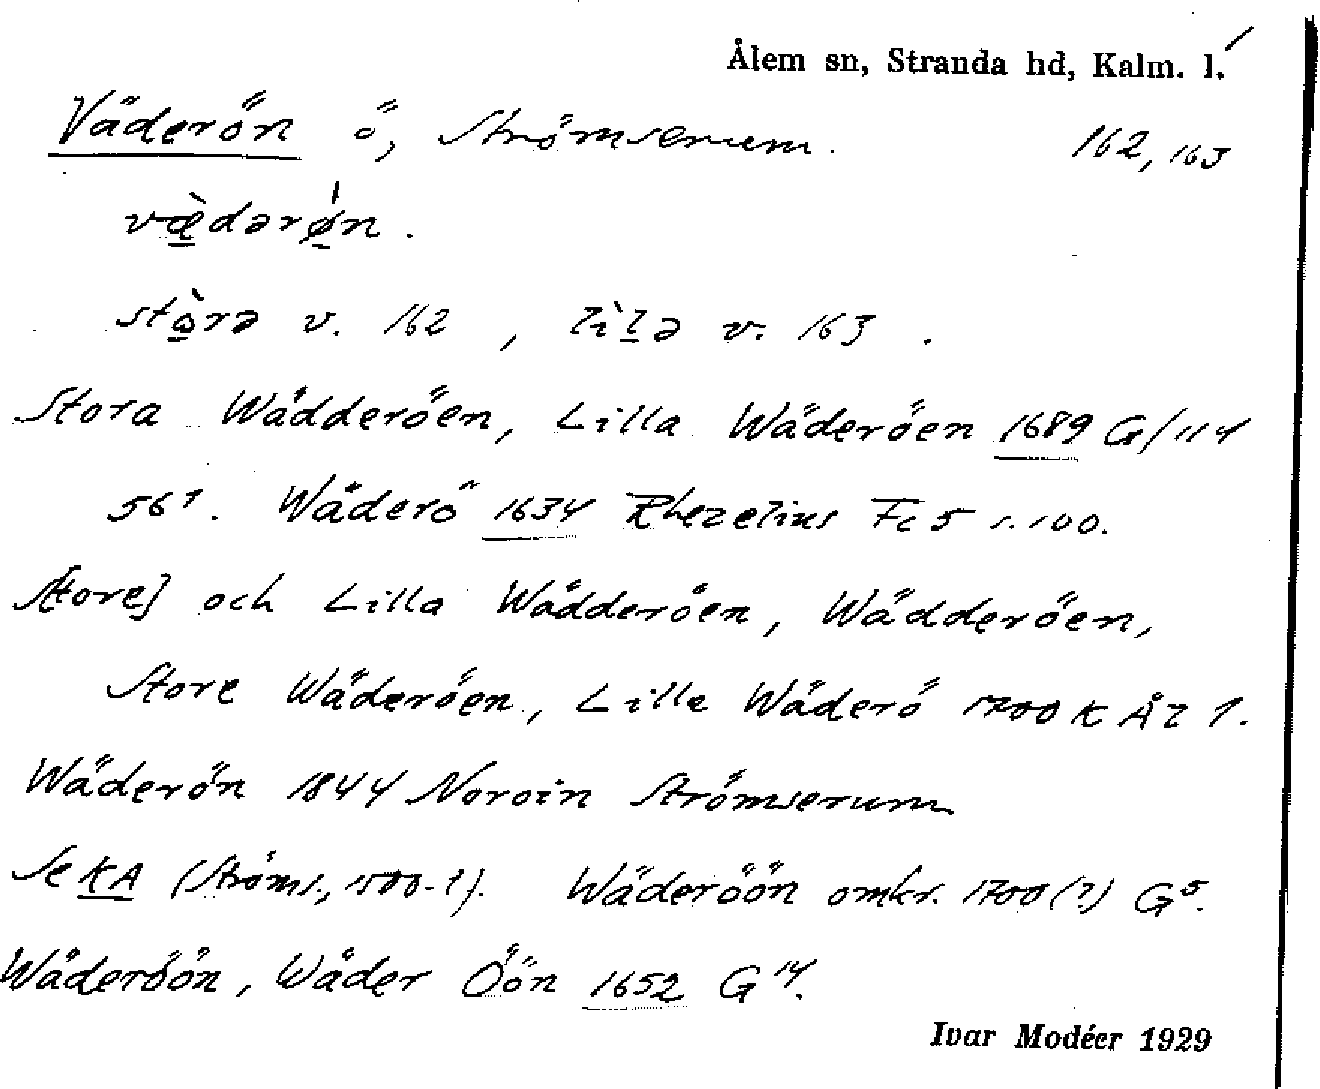 Ålem sn, Stranda hd, Kalm. l.
Väderön ö, Strömserum. 162, 163
væ̀dərø̀n.
stòrə v. 162, lìlə v. 163.
Stora Wädderöen, Lilla Wäderöen 1689 G/114
56¹. Wäderö 1634 Rhezelius Fc 5 s. 100.
Store] och Lilla Wädderöen, Wädderöen,
Store Wäderöen, Lille Wäderö 1700 K ÅZ 1.
Wäderön 1844 Noroin Strömserum
Se KA (Ströms., 1500-t). Wäderöön omkr. 1700(?) G⁵.
Wäderöön, Wäder Öön 1652 G¹⁴.
Ivar Modéer 1929